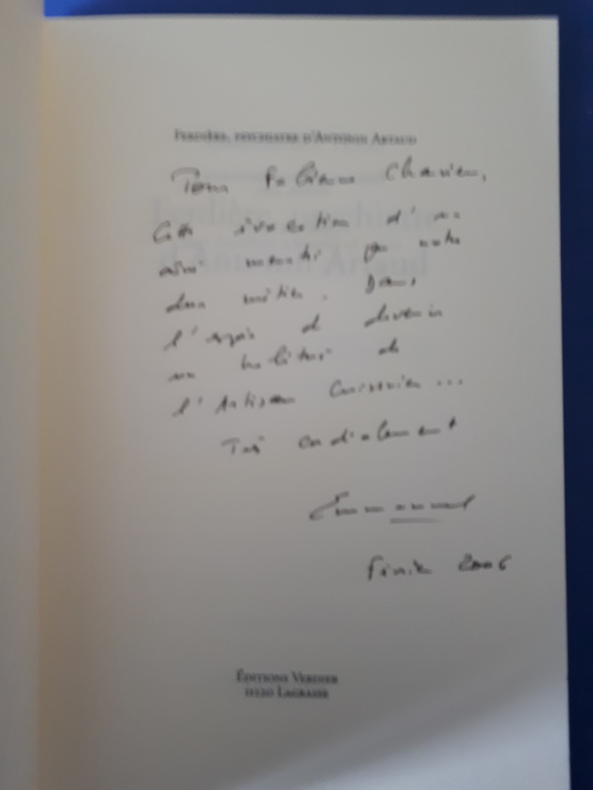 FERDIÈRE, PSYCHIATRE D'ANTONIN ARTAUD
Pour Chavien,
Cette évocation d'un
ainsi par notre
dur métier. Dans
l'espoir de devenir
un habitué de
l'Artisan Cuisinier ...
Très cordialement
Emmanuel
Février 2006
ÉDITIONS VERDIER
11220 LAGRASSE